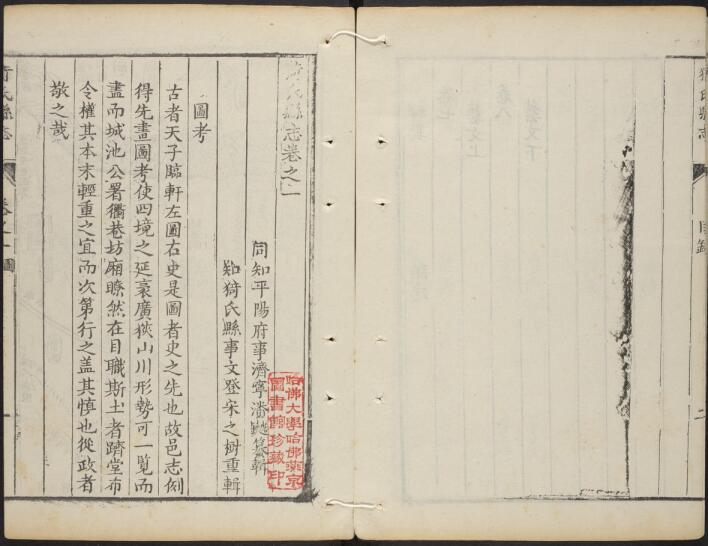 猗氏縣志
目錄
二
猗氏縣志卷之一
同知平陽府事濟寧潘鉞纂輯
知猗氏縣事文登宋之樹重輯
圖考
古者天子臨軒左圖右史是圖者史之先也故邑志例
得先畫圖考使四境之延袤廣狹山川形勢可一覽而
盡而城池公署衢巷坊廂瞭然在目職斯土者躋堂布
令權其本末輕重之宜而次第行之盖其慎也從政者
敬之哉
猗氏縣志
卷之一圖
一
哈佛大學哈佛燕京
圖書館珍藏印